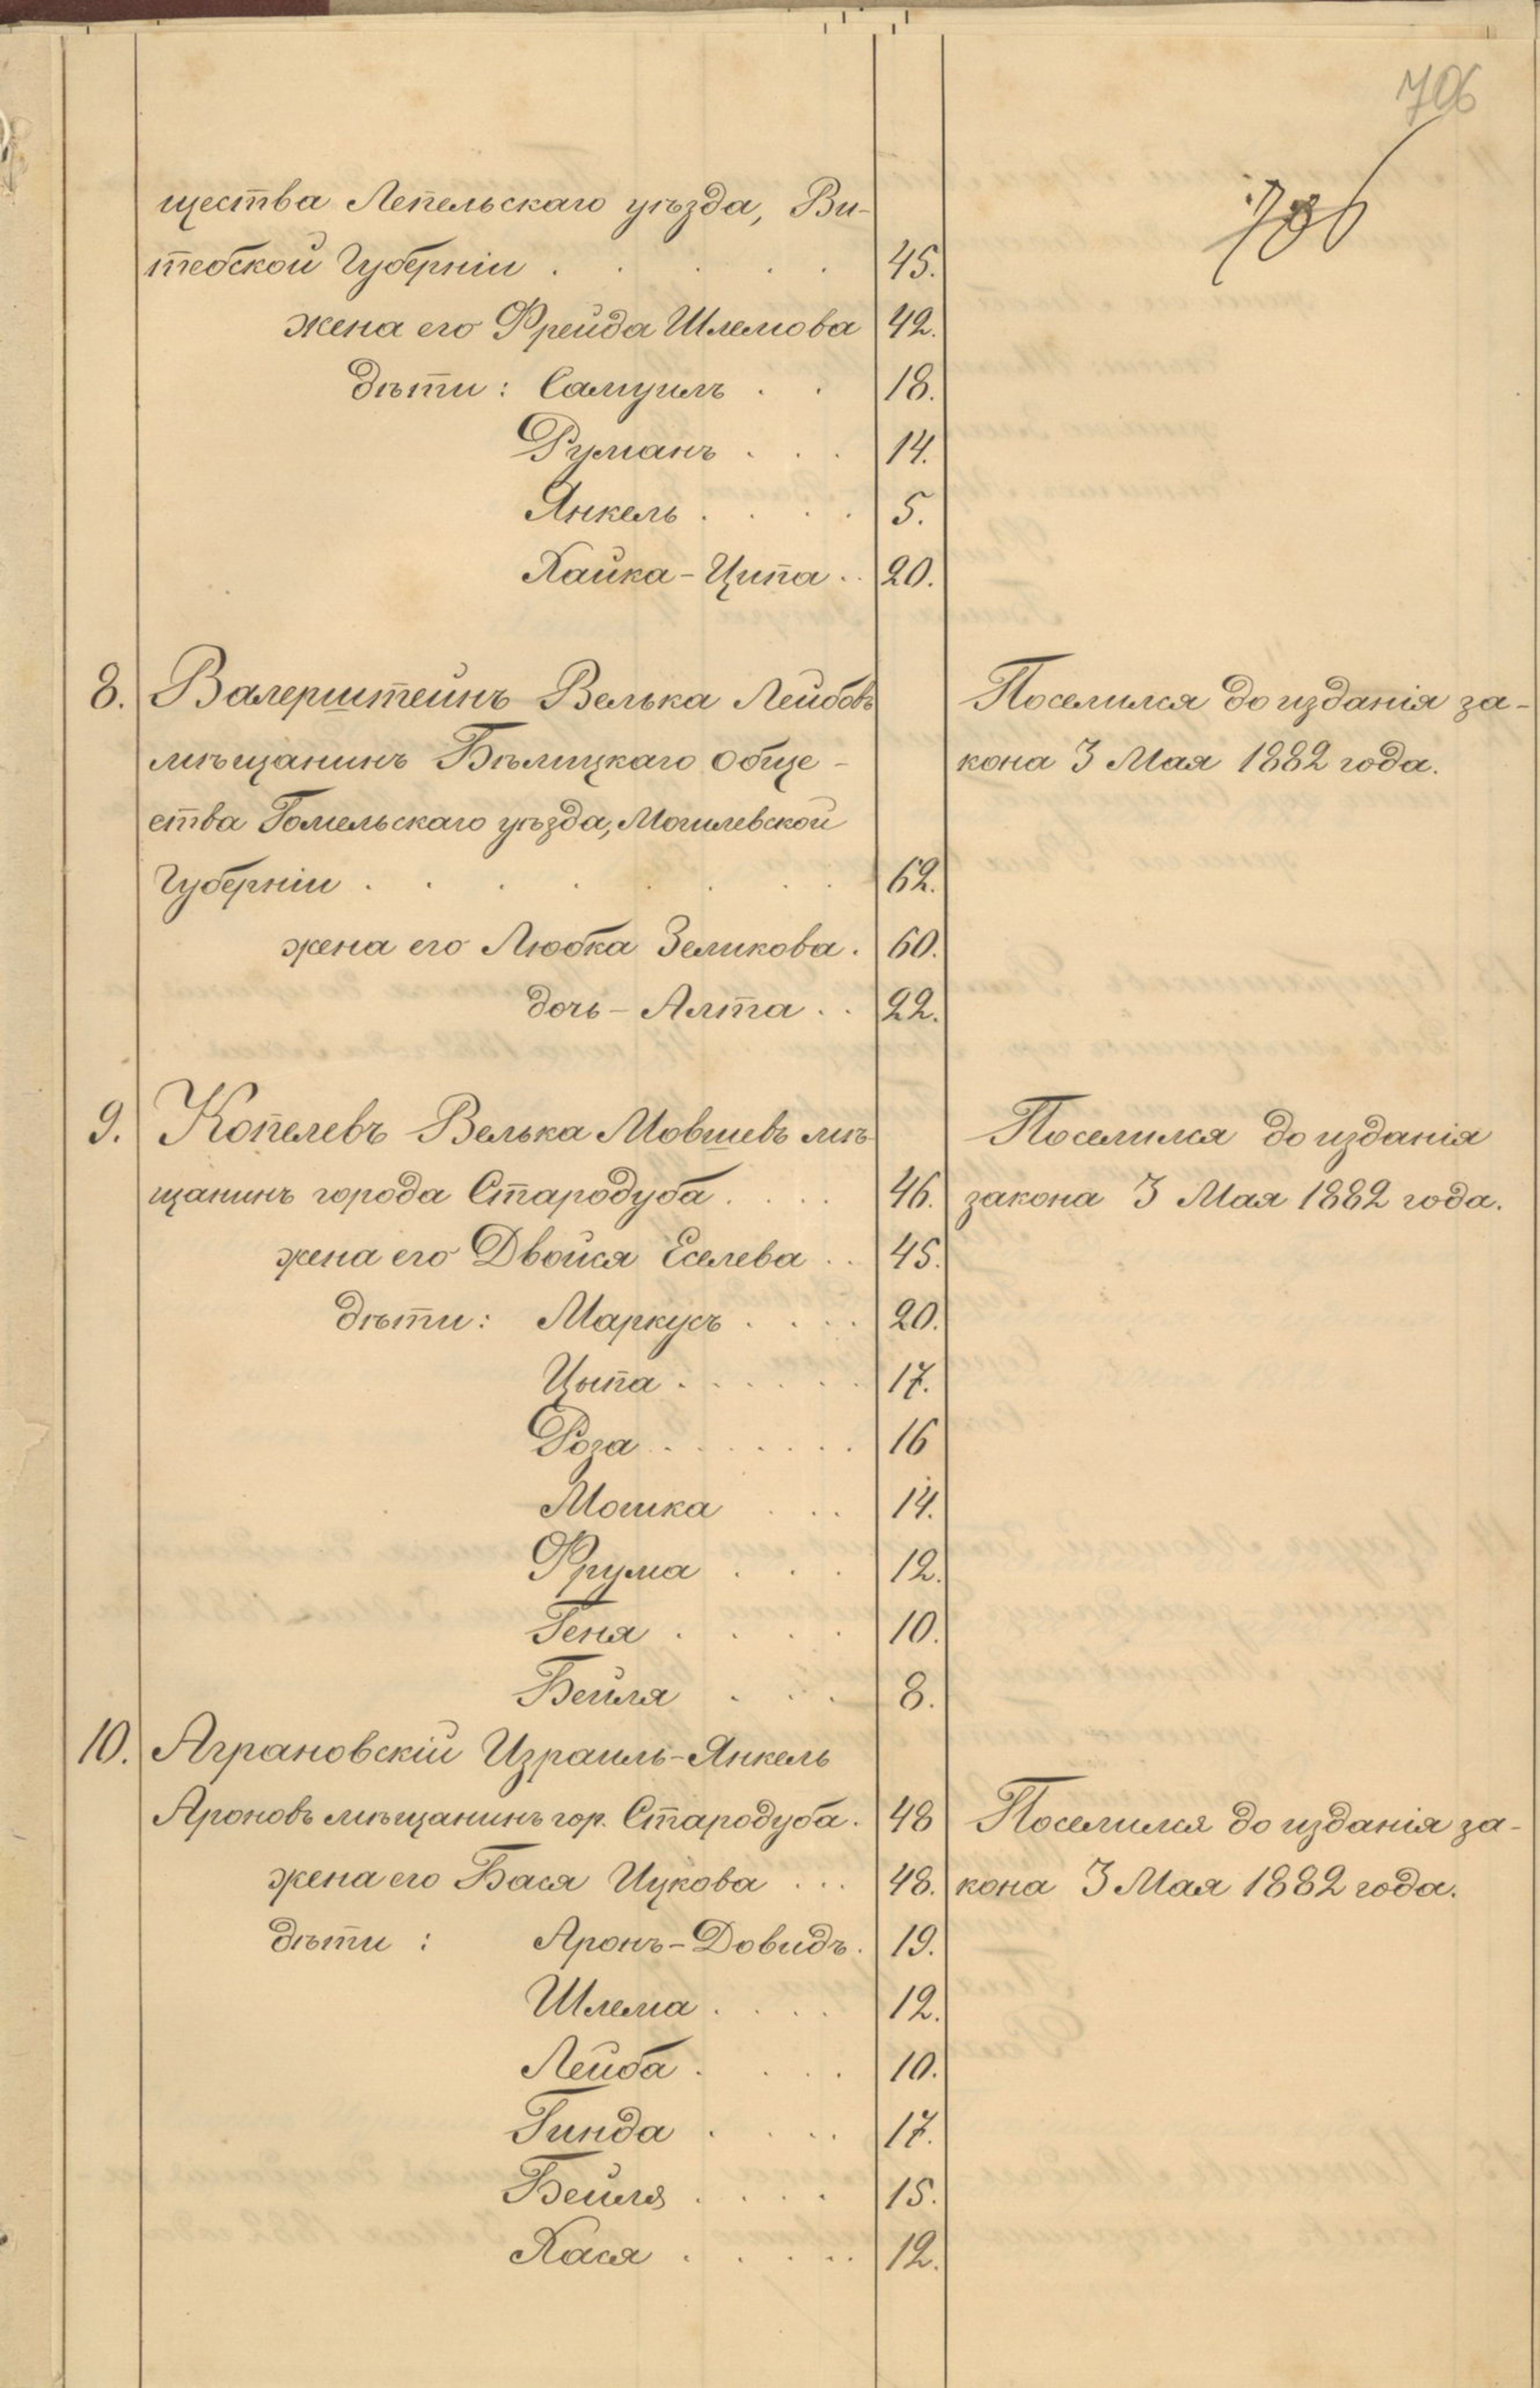 706
706
щества Лепельскаго уѣзда, Ви-
тебской Губерніи . . . . . 45.
жена его Фрейда Шлемова 42.
дѣти: Самуилъ . . 18.
Руманъ . . . 14.
Янкель . . . . 5.
Хайка-Ципа . . 20.
8. Валерштейнъ Велька Лейбовъ Поселился до изданія за-
мѣщанинъ Бѣлицкаго обще- кона 3 Мая 1882 года.
ства Гомельскаго уѣзда, Могилевской
Губерніи . . . . . . . 62.
жена его Любка Зеликова . 60.
дочь - Алта . . 22.
9. Копелевъ Велька Мовшевъ мѣ- Поселился до изданія
щанинъ города Стародуба . . . . 46. закона 3 Мая 1882 года.
жена его Двойся Еселева . . 45.
дѣти: Маркусъ . . . . 20.
Цыпа . . . . . . 17.
Роза . . . . . . . 16
Мошка . . . 14.
Фрума . . . 12.
Геня . . . . 10.
Бейля . . . 8.
10. Аграновскій Израиль-Янкель
Ароновъ мѣщанинъ гор. Стародуба . 48 Поселился до изданія за-
жена его Бася Ицкова . . . 48. кона 3 Мая 1882 года.
дѣти : Аронъ-Довидъ . 19.
Шлема . . . . 12.
Лейба . . . . 10.
Гинда . . . . 17.
Бейля . . . . 15.
Хася . . . . . 12.